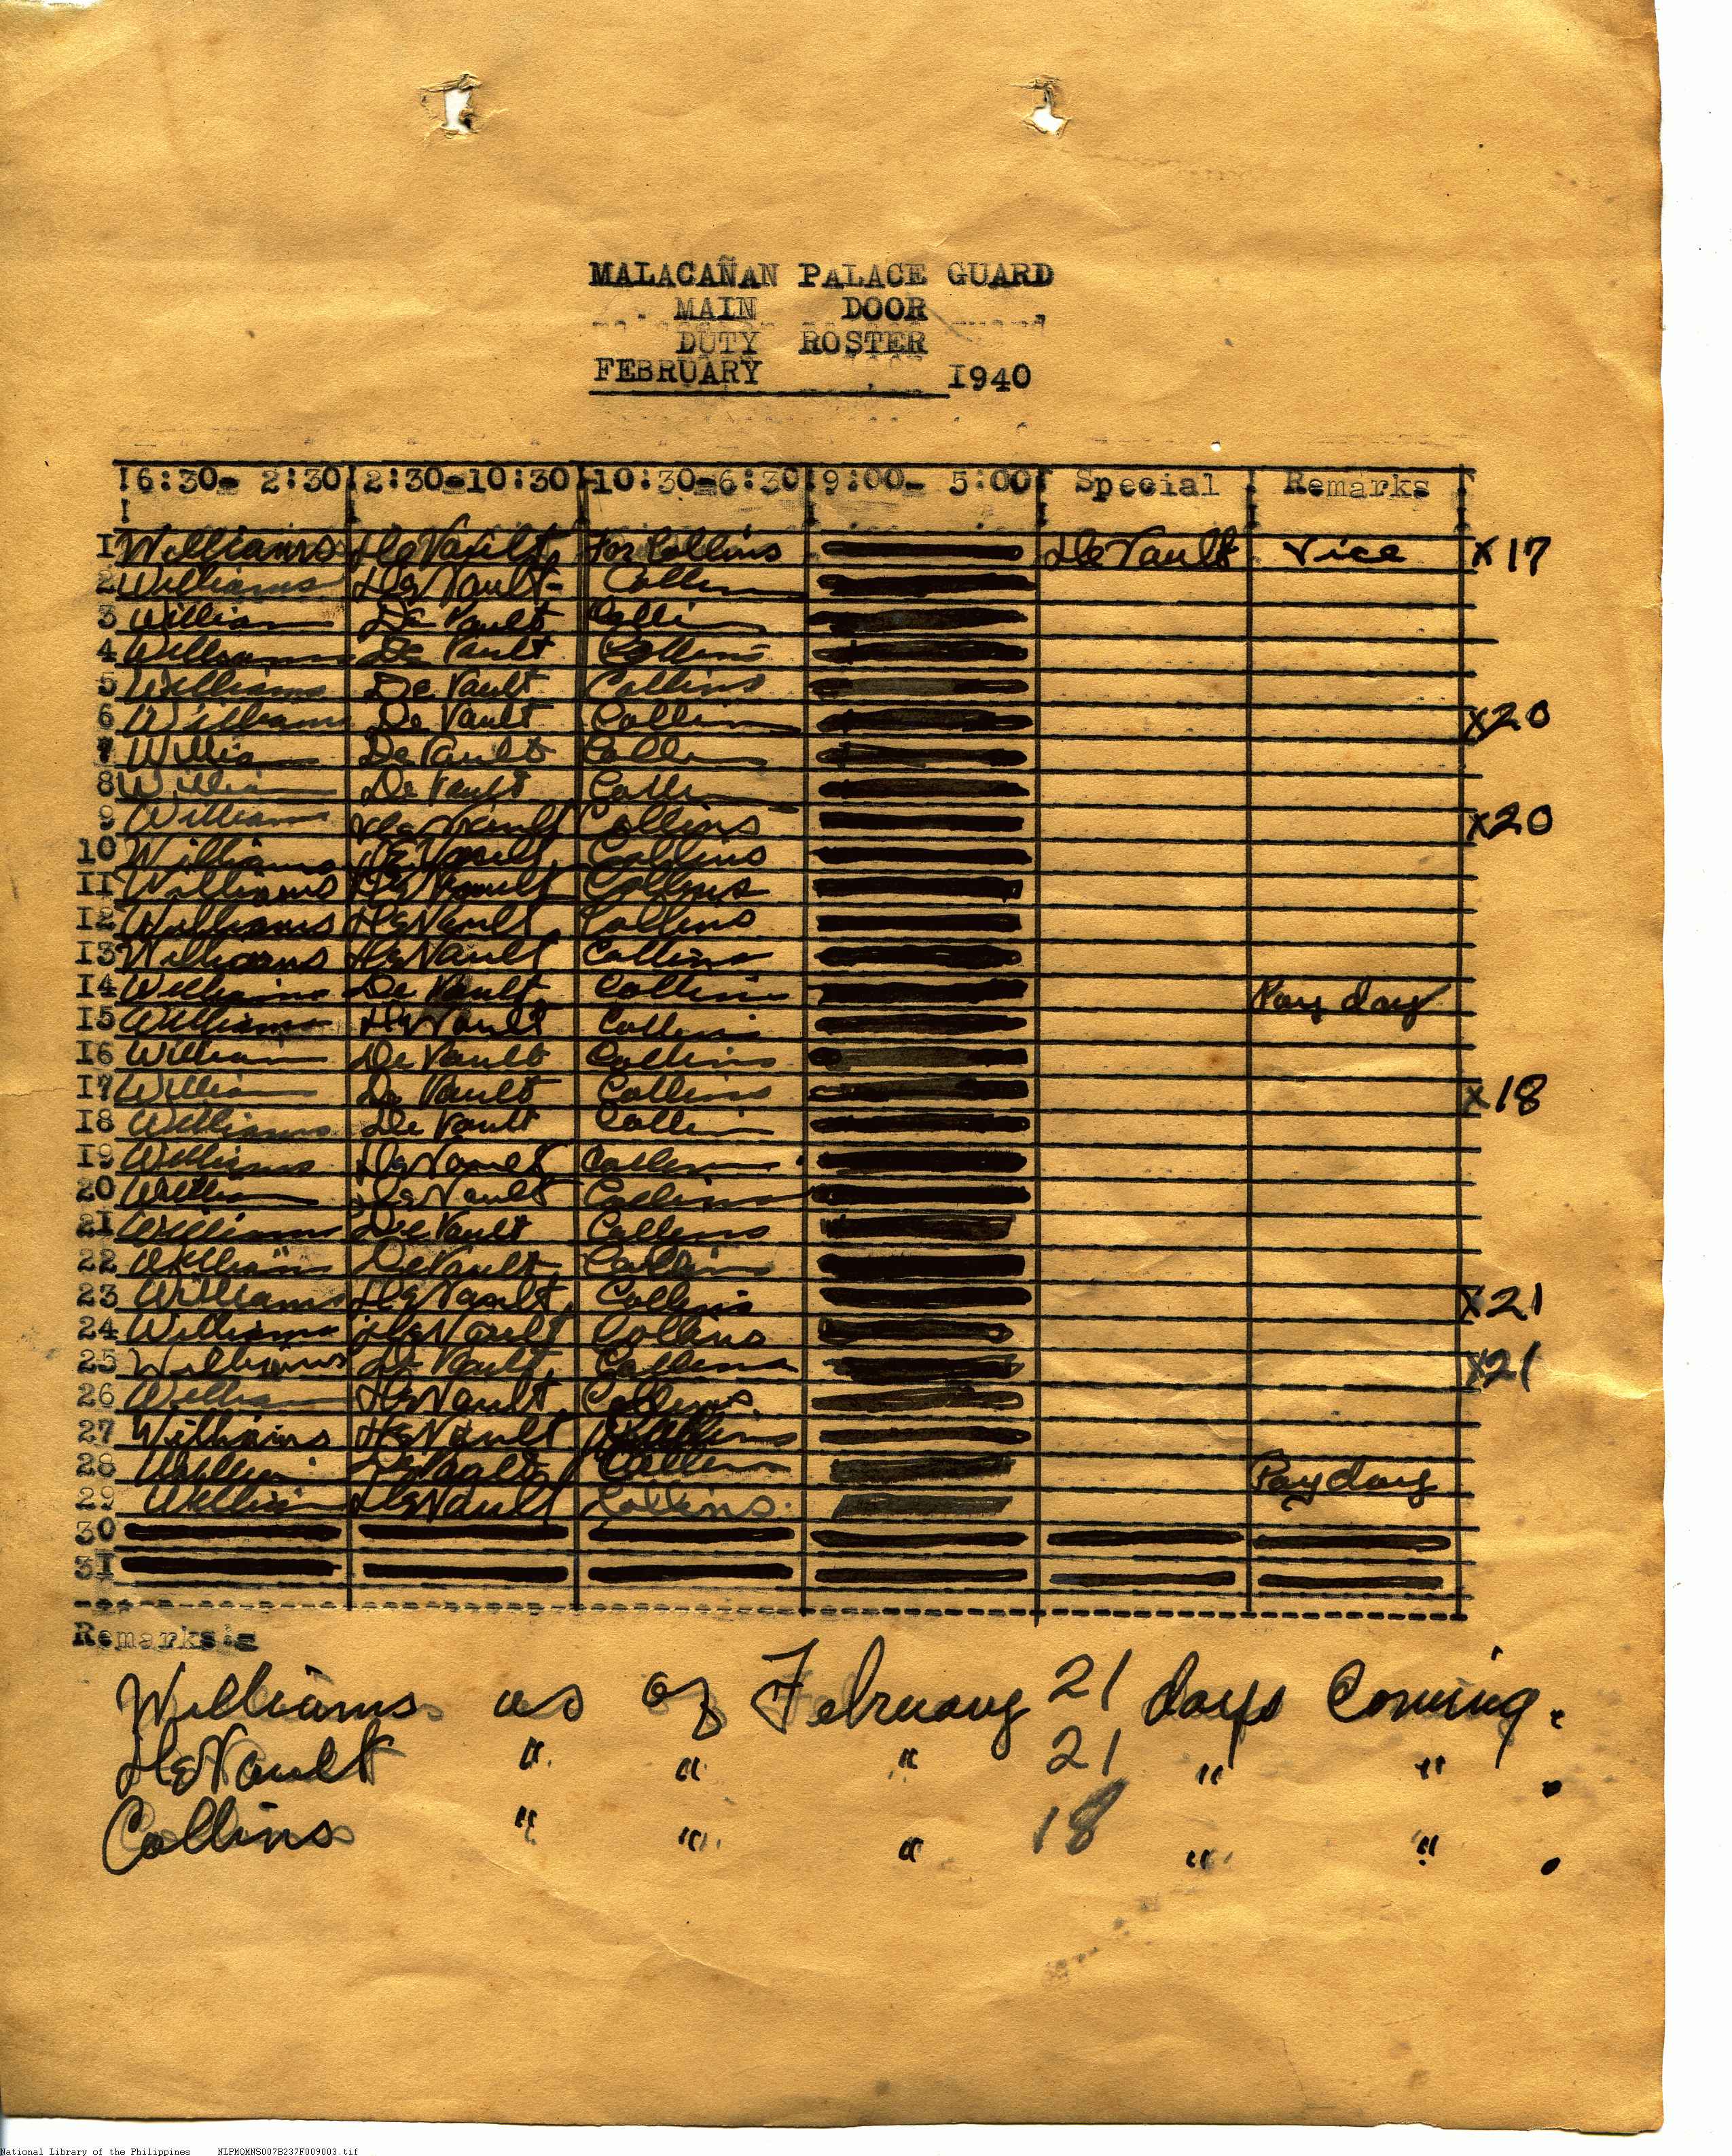 MALACAÑAN PALACE GUARD
MAIN DOOR
DUTY ROSTER
FEBRUARY 1940
6:30- 2:30 2:30-10:30 10:30-6:30 9:00- 5:00 Special Remarks
1 Williams DeVault, For Collins DeVault Vice X17
2 Williams DeVault- Collins
3 William DeVault Collins
4 Williams DeVault Collins
5 Williams DeVault Collins
6 Williams DeVault Collins X20
7 William DeVault Collins
8 William DeVault Collins
9 Williams DeVault Collins X20
10 Williams DeVault, Collins
11 Williams DeVault Collins
12 Williams DeVault, Collins
13 Williams DeVault Collins
14 Williams DeVault, Collins Pay day
15 Williams DeVault Collins
16 William DeVault Collins
17 William DeVault Collins X18
18 Williams DeVault Collins
19 Williams DeVault Collins
20 William DeVault Collins
21 Williams DeVault Collins
22 Williams DeVault Collins
23 Williams DeVault, Collins X21
24 Williams DeVault Collins
25 Williams DeVault, Collins X21
26 William DeVault, Collins.
27 Williams DeVault Collins
28 William DeVault Collins Payday
29 William DeVault Collins.
30
31
Remarks:=
Williams as of February 21 days Coming.
DeVault " " " 21 " " .
Collins " " " 18 " " .
National Library of the Philippines NLPMQMNS007B237F009003.tif